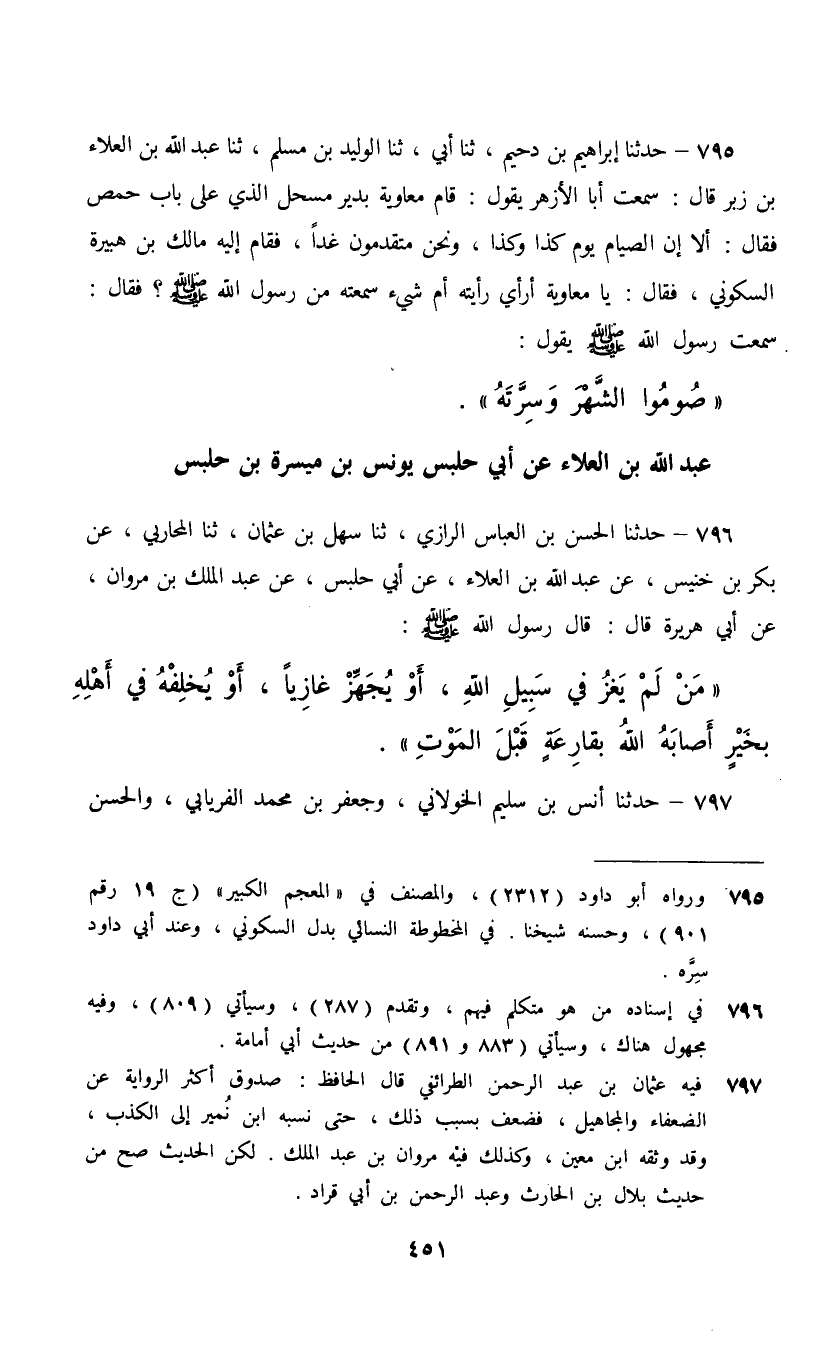 ٧٩٥ – حدثنا إبراهيم بن دحيم ، ثنا أبي ، ثنا الوليد بن مسلم ، ثنا عبد الله بن العلاء
بن زبر قال : سمعت أبا الأزهر يقول : قام معاوية بدير مسحل الذي على باب حمص
فقال : ألا إن الصيام يوم كذا وكذا ، ونحن متقدمون غداً ، فقام إليه مالك بن هبيرة
السكوني ، فقال : يا معاوية أرأي رأيته أم شيء سمعته من رسول الله ﷺ ؟ فقال :
سمعت رسول الله ﷺ يقول :
« صُومُوا الشَّهْرَ وَسِرَّتَهُ » .
عبد الله بن العلاء عن أبي حلبس يونس بن ميسرة بن حلبس
٧٩٦ – حدثنا الحسن بن العباس الرازي ، ثنا سهل بن عثمان ، ثنا المحاربي ، عن
بكر بن خنيس ، عن عبد الله بن العلاء ، عن أبي حلبس ، عن عبد الملك بن مروان ،
عن أبي هريرة قال : قال رسول الله ﷺ :
« مَنْ لَمْ يَغْزُ في سَبِيلِ اللّهِ ، أَوْ يُجَهِّزْ غازِياً ، أَوْ يُخلِفْهُ في أَهْلِهِ
بخَيْرٍ أَصابَهُ اللّهُ بقارِعَةٍ قَبْلَ المَوْتِ » .
٧٩٧ – حدثنا أنس بن سليم الخولاني ، وجعفر بن محمد الفريابي ، والحسن
٧٩٥ ورواه أبو داود (٢٣١٢) ، والمصنف في «المعجم الكبير» (ج ١٩ رقم
٩٠١) ، وحسنه شيخنا . في المخطوطة النسائي بدل السكوني ، وعند أبي داود
سِرَّه .
٧٩٦ في إسناده من هو متكلم فيهم ، وتقدم (٢٨٧) ، وسيأتي (٨٠٩) ، وفيه
مجهول هناك ، وسيأتي (٨٨٣ و ٨٩١) من حديث أبي أمامة .
٧٩٧ فيه عثمان بن عبد الرحمن الطرائفي قال الحافظ : صدوق أكثر الرواية عن
الضعفاء والمجاهيل ، فضعف بسبب ذلك ، حتى نسبه ابن نُمير إلى الكذب ،
وقد وثقه ابن معين ، وكذلك فيه مروان بن عبد الملك . لكن الحديث صح من
حديث بلال بن الحارث وعبد الرحمن بن أبي قراد .
٤٥١